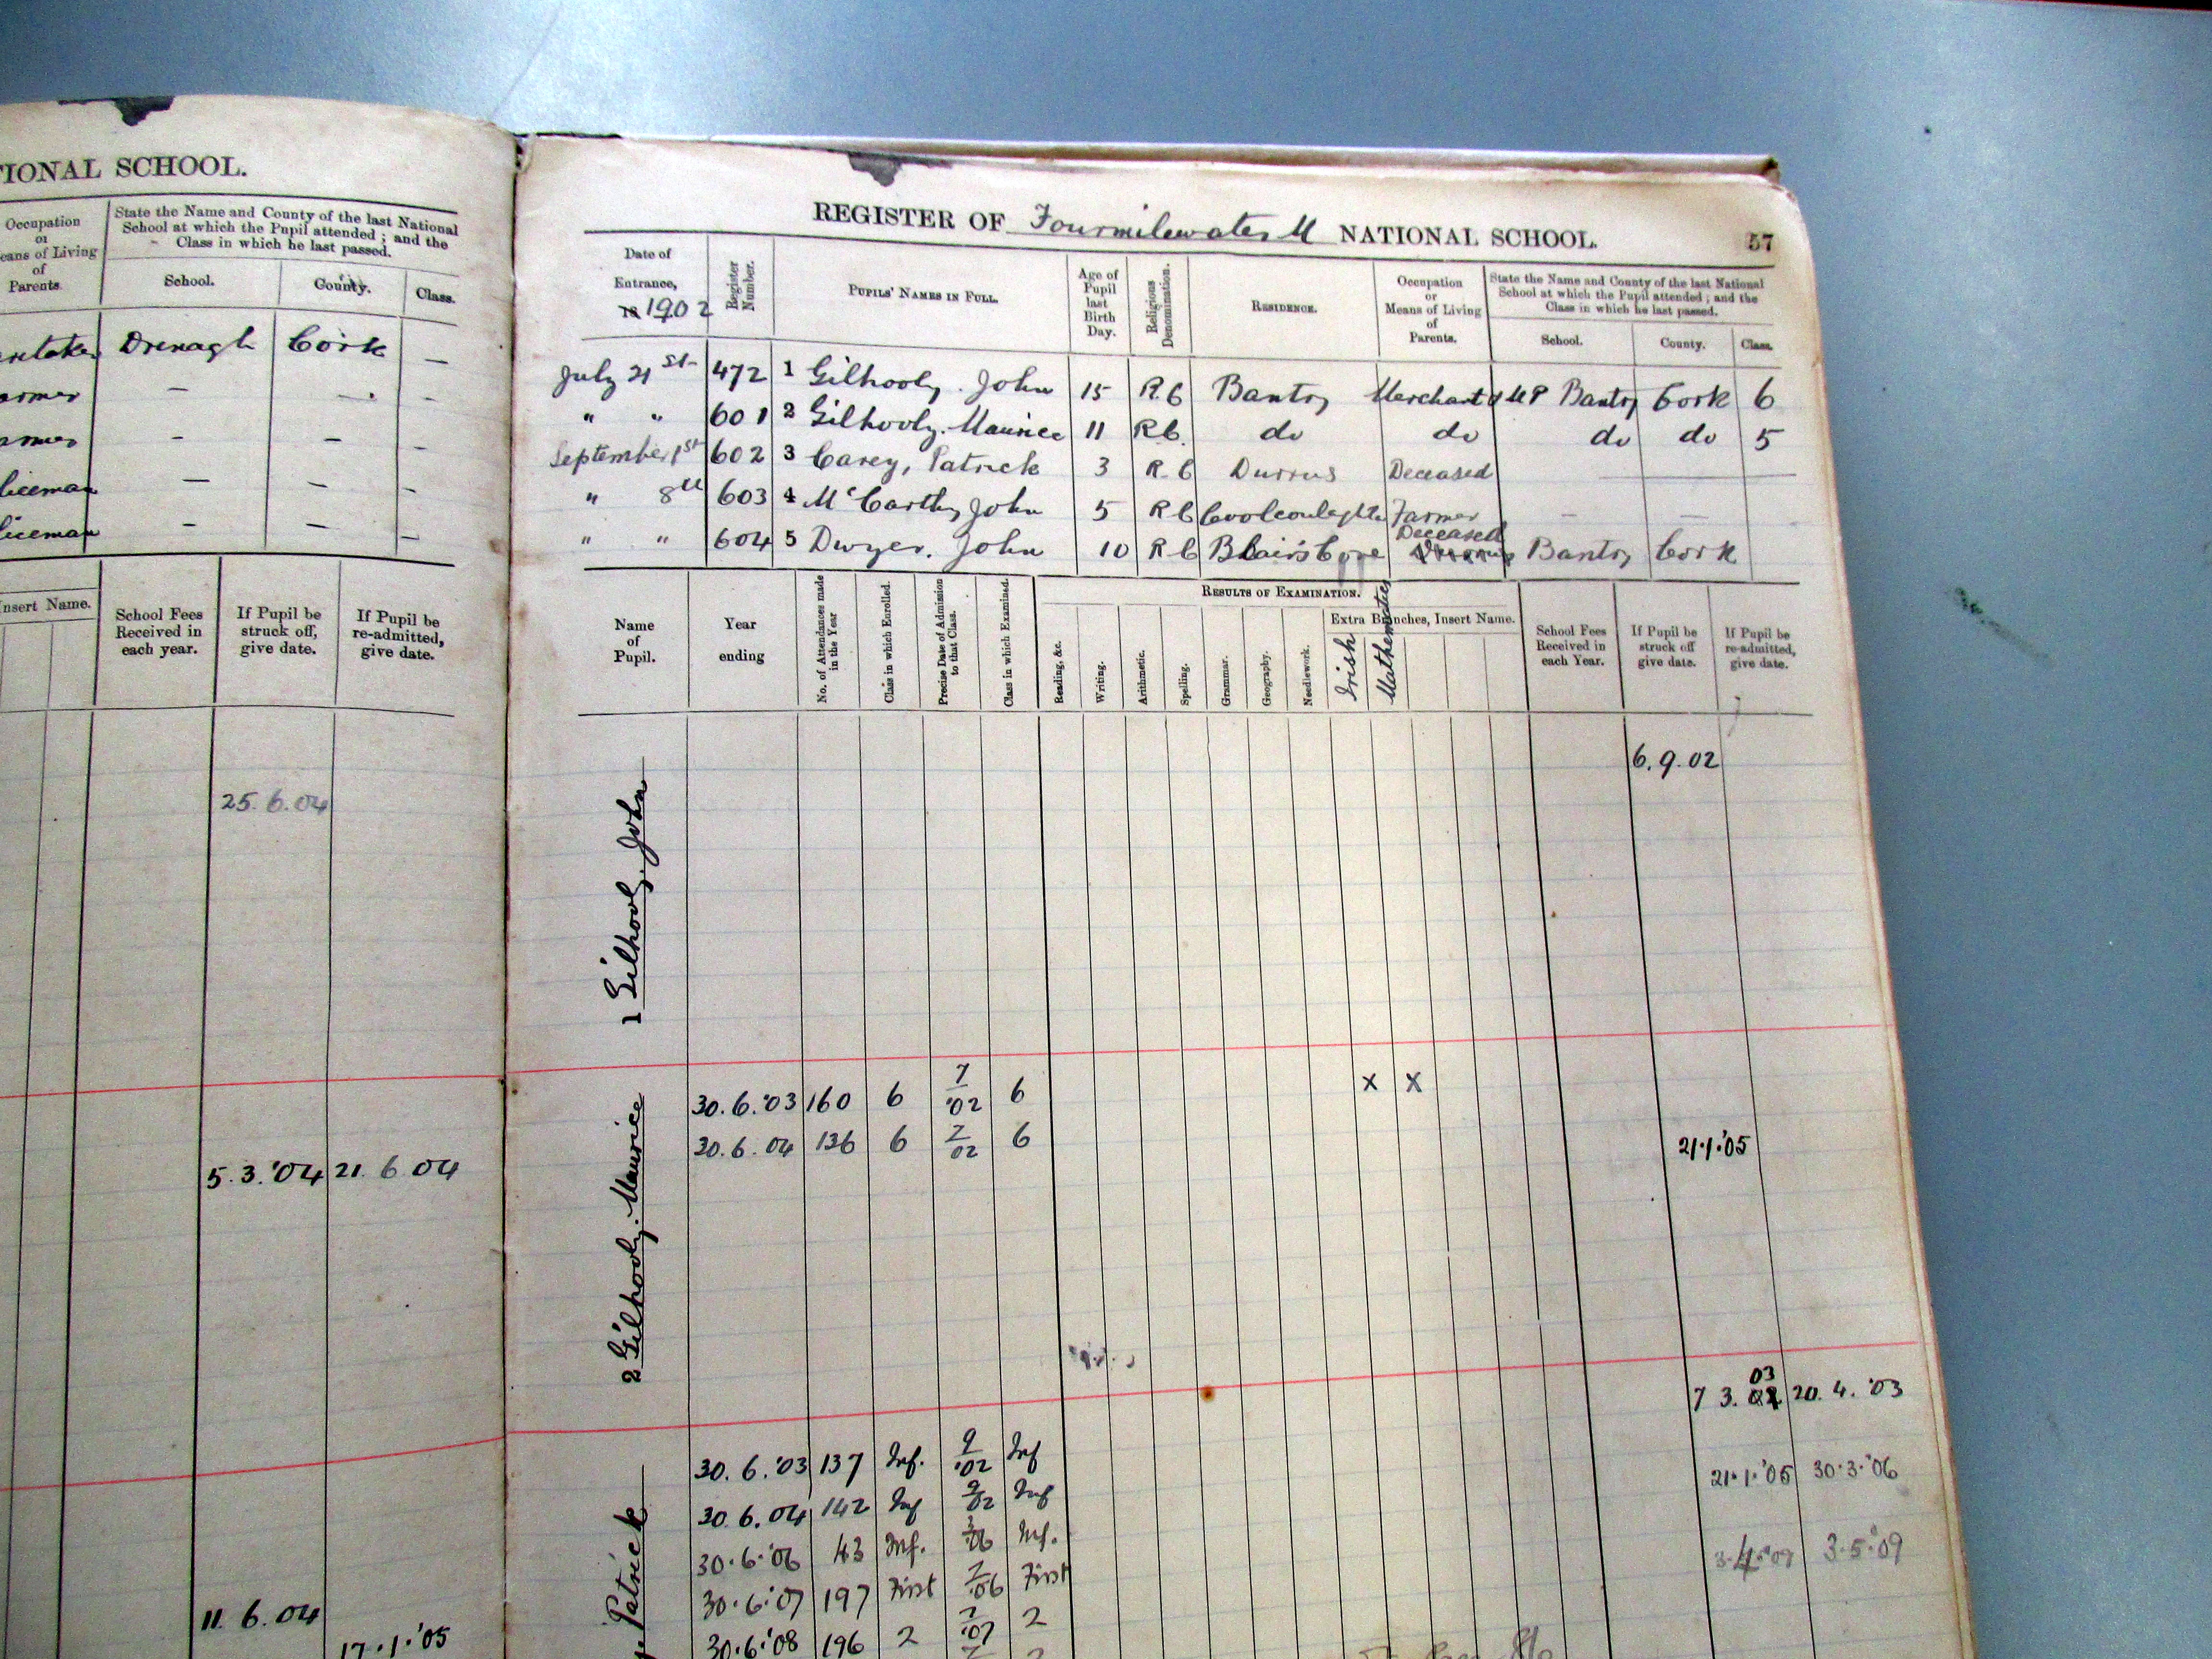 TIONAL SCHOOL.
Occupation
or
eans of Living
of
Parents.
State the Name and County of the last National
School at which the Pupil attended ; and the
Class in which he last passed.
School. County. Class.
Drenagh Cork —
armer — — -
— — -
liceman — — -
liceman — — —
nsert Name.
School Fees
Received in
each year.
If Pupil be
struck off,
give date.
If Pupil be
re-admitted,
give date.
25. 6. 04
5. 3. '04 21. 6 04
11. 6. 04
17. 1. '05
REGISTER OF Fourmilewater M NATIONAL SCHOOL. 57
Date of
Entrance,
1902
Register
Number.
PUPILS' NAMES IN FULL.
Age of
Pupil
last
Birth
Day.
Religious
Denomination.
RESIDENCE.
Occupation
or
Means of Living
of
Parents.
State the Name and County of the last National
School at which the Pupil attended ; and the
Class in which he last passed.
School. County. Class.
July 21st 472 1 Gilhooly. John 15 R.C Bantry Merchant & MP Bantry Cork 6
" " 601 2 Gilhooly. Maurice 11 R.C. do do do do 5
September 1st 602 3 Carey, Patrick 3 R.C Durrus Deceased
" 8th 603 4 McCarthy John 5 R C Farmer — —
Deceased
" " 604 5 Dwyer. John 10 R C Blair's Cove Bantry Cork
Name
of
Pupil.
Year
ending
No. of Attendances made
in the Year
Class in which Enrolled.
Precise Date of Admission
to that Class.
Class in which Examined.
RESULTS OF EXAMINATION.
Reading, &c.
Writing.
Arithmetic.
Spelling.
Grammar.
Geography.
Needlework.
Extra Branches, Insert Name.
Irish
Mathematics
School Fees
Received in
each Year.
If Pupil be
struck off
give date.
If Pupil be
re-admitted,
give date.
1 Gilhooly. John
6. 9. 02
2 Gilhooly. Maurice
30. 6. '03 160 6 7/'02 6 x x
30. 6. 04 136 6 7/02 6 21.1.'05
03
7 3. 20. 4. '03
Patrick
30. 6. '03 137 Inf. 9/'02 Inf
21.1.'05 30.3.'06
30. 6. 04 142 Inf 9/02 Inf
30.6.'06 43 Inf. 3/'06 Inf.
3.5.'09
30.6.'07 197 First 7/'06 First
30.6.'08 196 2 7/'07 2